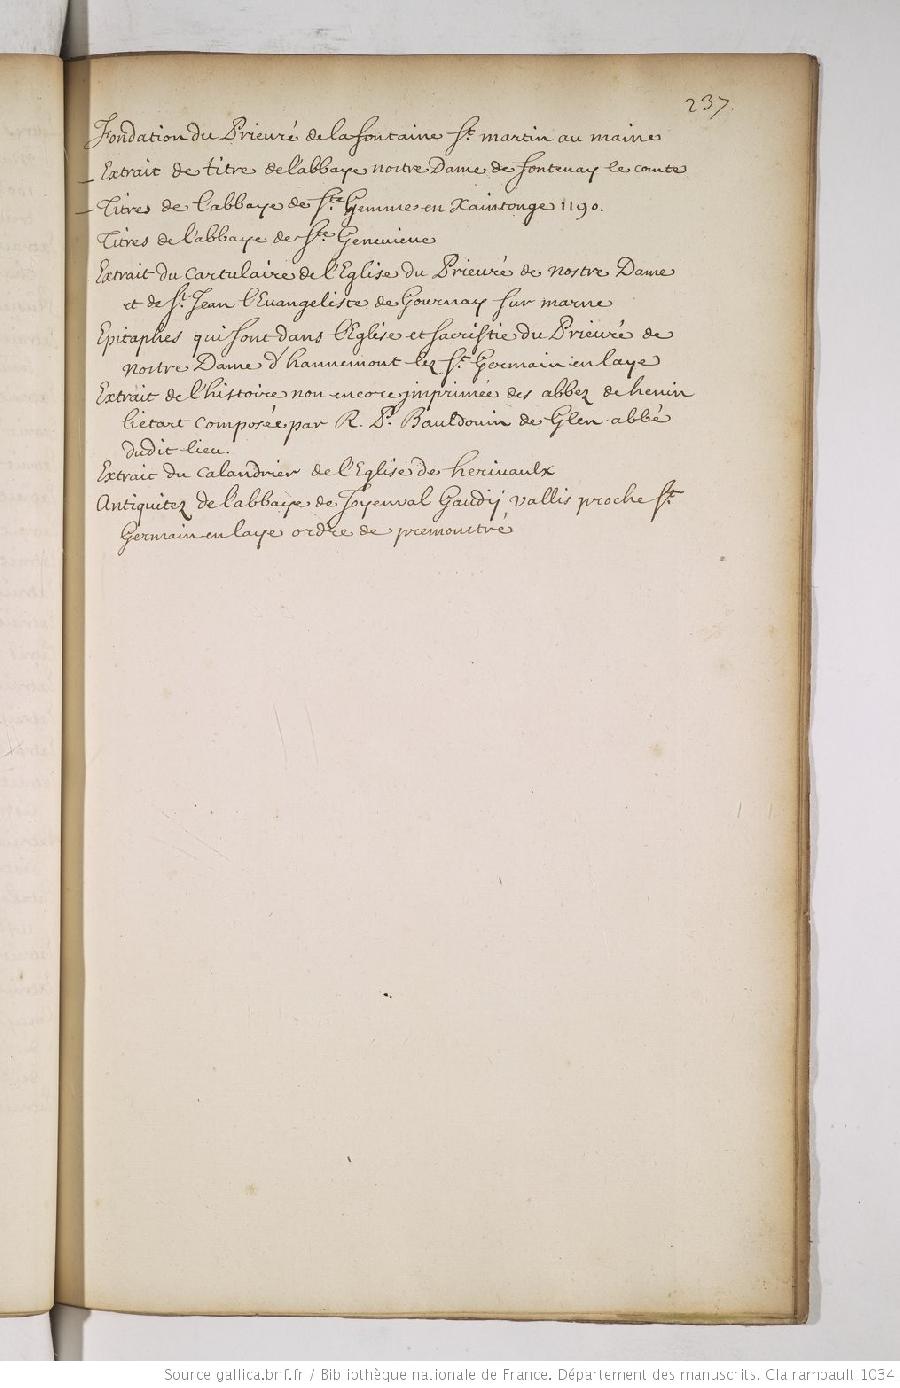 237.
Fondation du Prieuré de la fontaine St martin au maine
Extrait de titre de l'abbaye nostre Dame de fontenay le comte
Titres de l'abbaye de Ste Gemme en Xaintonge 1190.
Titres de l'abbaye de Ste Genevieve
Extrait du cartulaire de l'Eglise du Prieuré de nostre Dame
et de St Jean l'Evangeliste de Gournay sur marne
Epitaphes qui sont dans l'Eglise et sacristie du Prieuré de
nostre Dame d'hannemont lez St Germain en laye
Extrait de l'histoire non encore imprimée des abbez de henin
lietart composée par R. P. Bauldouin de Glen abbé
dudit lieu.
Extrait du calandrier de l'Eglise de herivaulx
Antiquitez de l'abbaye de Joyenval Gaudij vallis proche St
Germain en laye ordre de premonstré
Source gallica.bnf.fr / Bibliothèque nationale de France. Département des manuscrits. Clairambault 1034